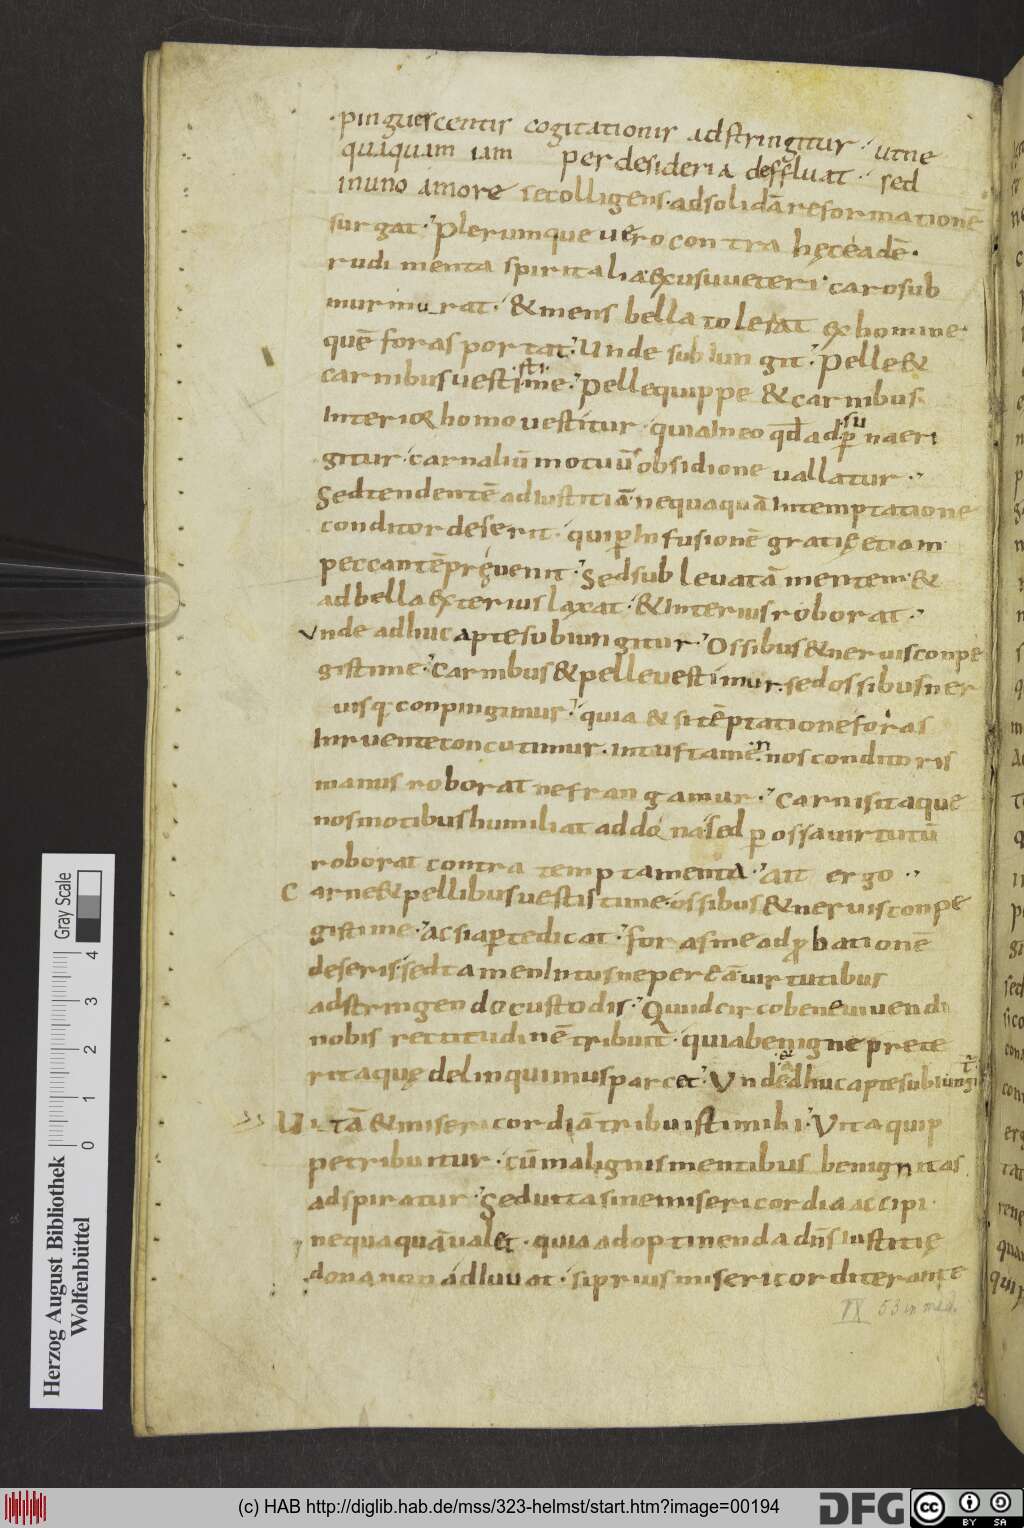 pinguescentis cogitationis adstringitur· utne
quaquam iam per desideria deffluat· sed
inuno amore secolligens· adsolidā reformationē
surgat· Plerumque uero contra hęceadē·
rudimenta spiritalia excusuueteri· carosub
murmurat· & mens bella tolerat ex homine·
quē foras portat· Unde subiungit· Pelle &
carnibus uestistime· Pellequippe & carnibus
Interior homo uestitur· quia In eo qđ ad suꝑna eri
gitur· carnaliū motuū obsidione uallatur·
Sed tendentē adiustitiā nequaquā Intemptatione
conditor deserit· qui ꝑ Infusionē gratię etiam
peccantē pręuenit· Sed subleuatā mentem &
ad bella exterius laxat· & Interius roborat·
Unde adhuc apte subiungitur· Ossibus & neruis conpe
gistime· Carnibus & pelle uestimur· sed ossibus ner
uisq; conpingimur· quia & si tēptatione foras
Inruente concutimur· intus tamen nos conditoris
manus roborat ne frangamur· Carnis itaque
nos motibus humiliat ad dona· sed ꝑ ossa uirtutū
roborat contra temptamenta· Ait ergo··
Carne & pellibus uestistime· ossibus & neruis conpe
gistime· Ac si aꝑte dicat· foras me ad ꝓbationē
deseris· sed tamen Intus ne pereā uirtutibus
adstringendo custodis· Quid circo bene uiuendi
nobis rectitudinē tribuit· quia benigne prete
rita quę delinquimus parcet· Unde & adhuc apte subiungit̄
Uitā & misericordiā tribuisti mihi· Vita quip
pe tribuitur· cū malignis mentibus benignitas
adspiratur· Sed uita sine misericordia accipi
nequaquā ualet· quia adoptinenda dn̄s iustitię
dona non adiuuat· si prius misericorditer ante
VI 53 in med.
Gray Scale
4
3
2
1
0
Herzog August Bibliothek
Wolfenbüttel
(c) HAB http://diglib.hab.de/mss/323-helmst/start.htm?image=00194
DFG
cc BY SA